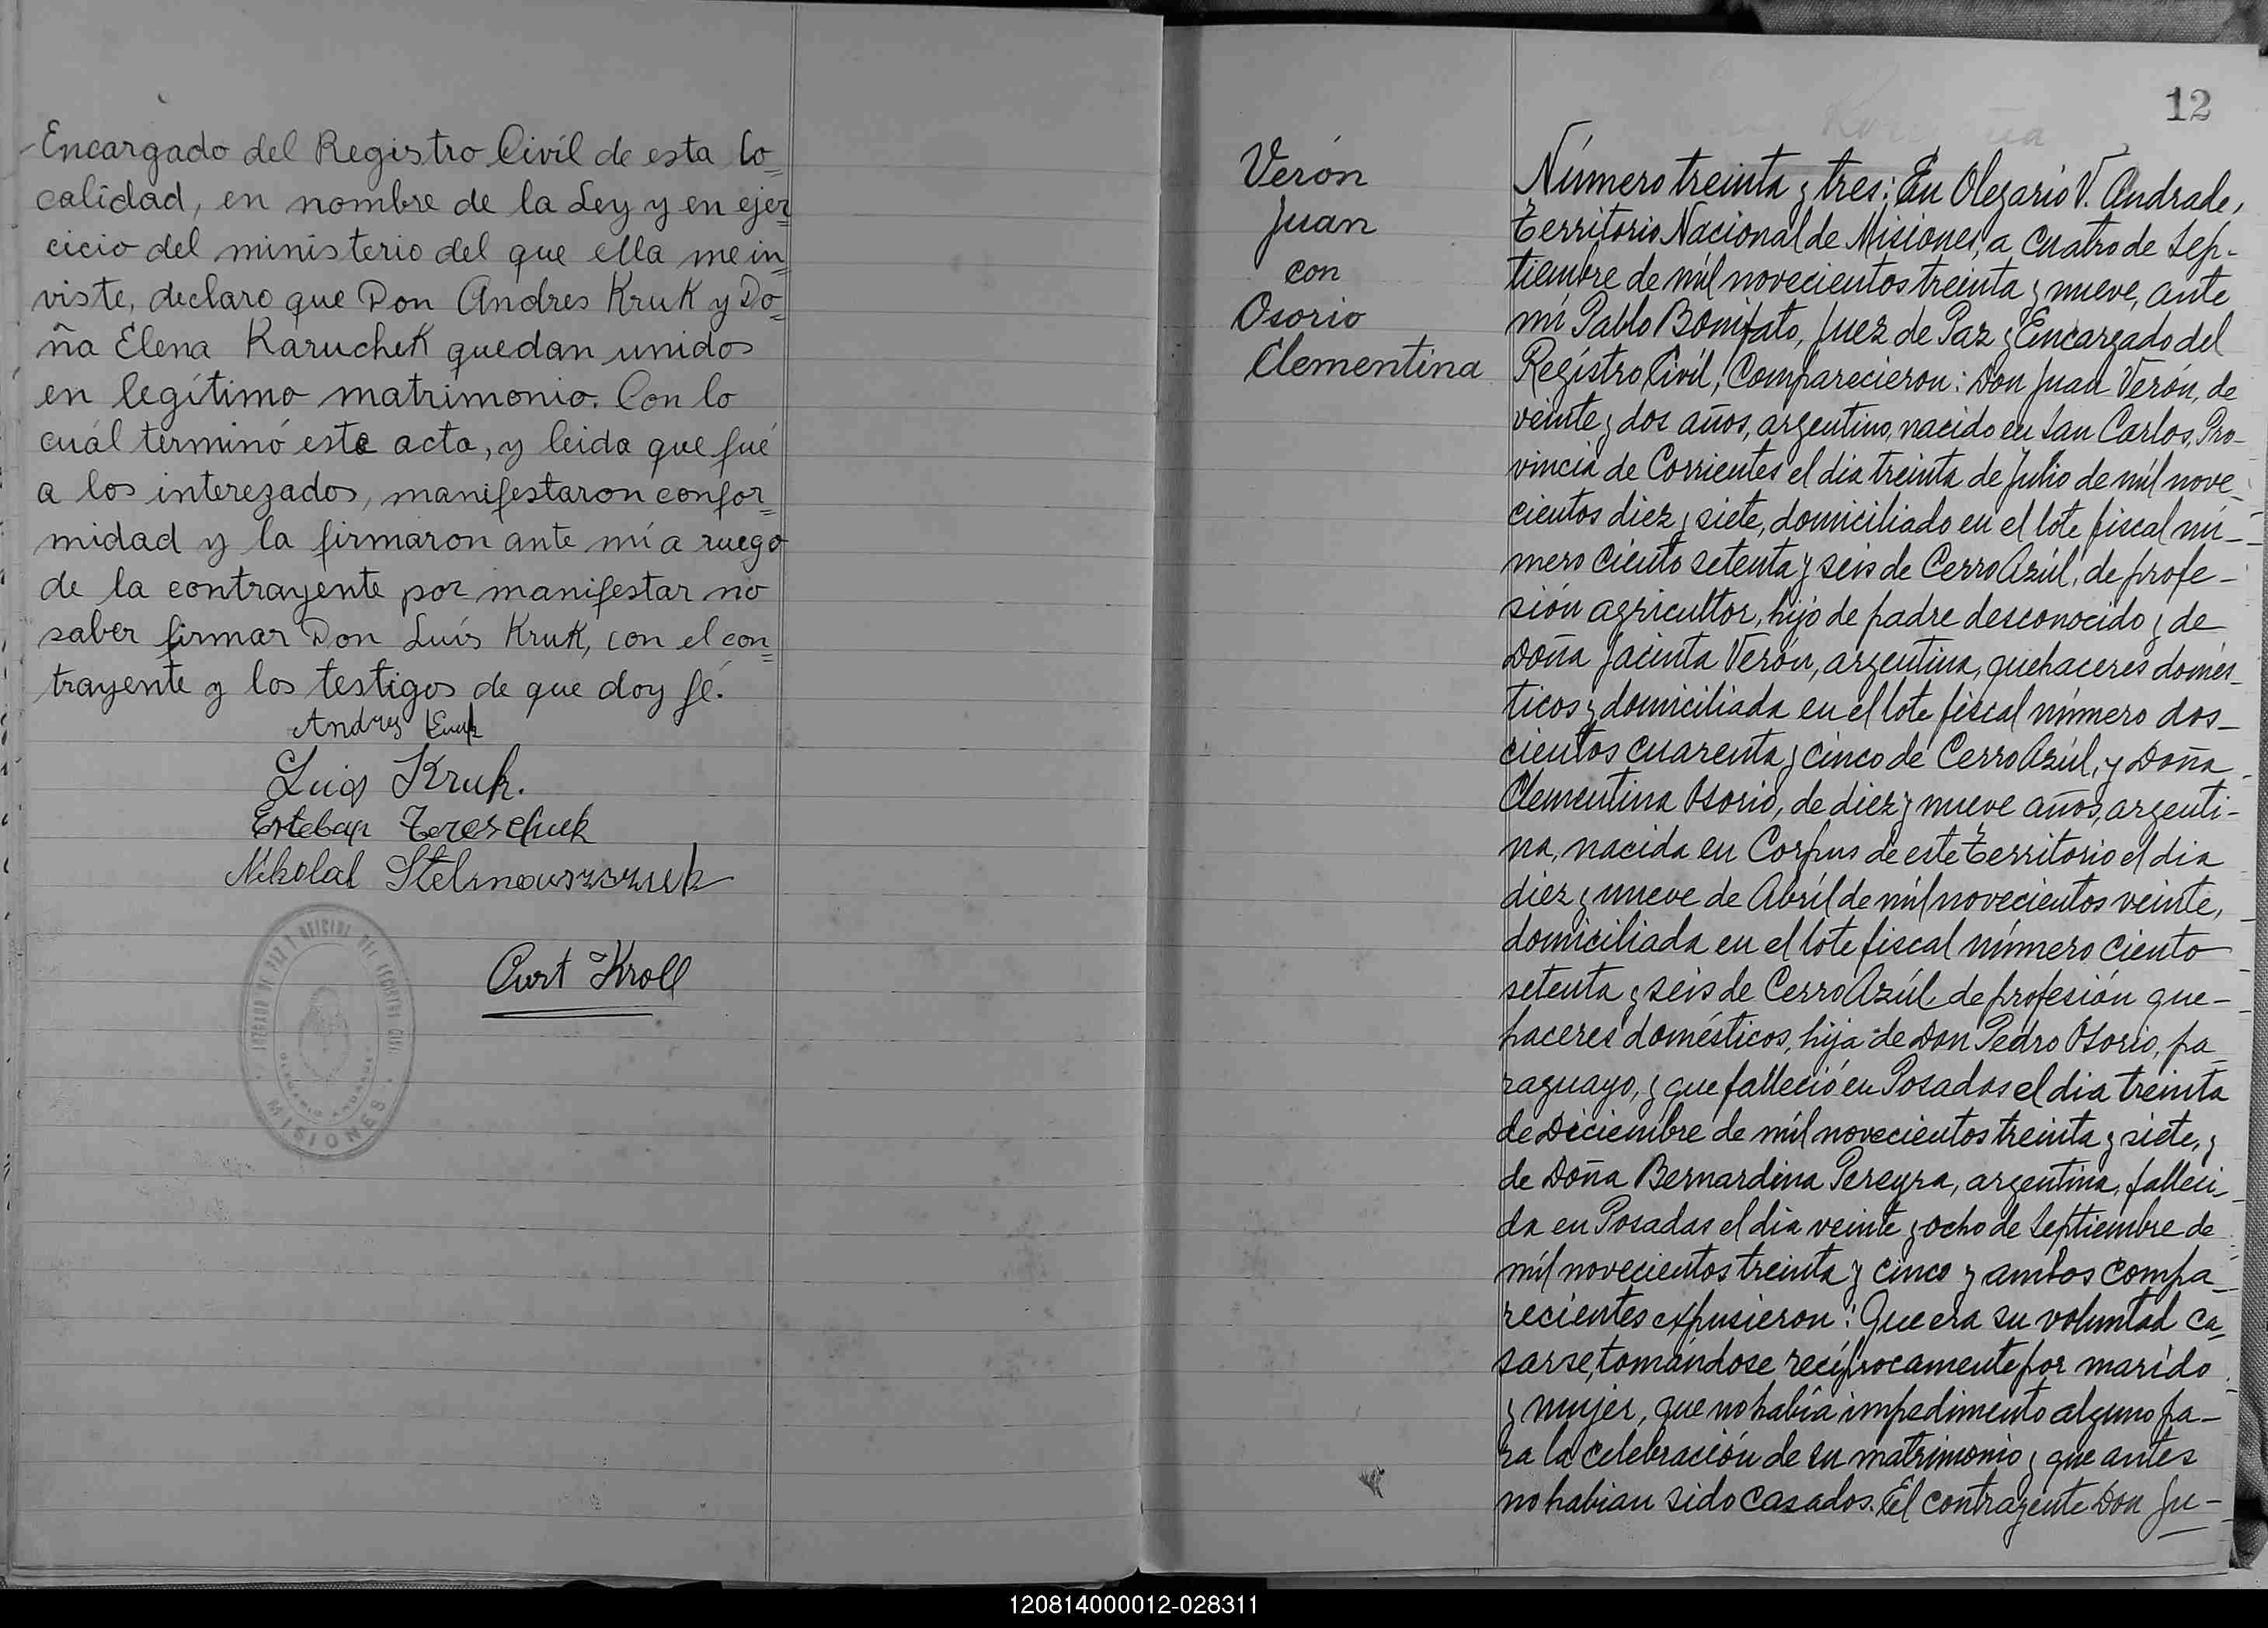 Encargado del Registro Civíl de esta lo=
calidad, en nombre de la Ley y en ejer=
cicio del ministerio del que ella me in=
viste, declaro que Don Andres Kruk y Do=
ña Elena Karuchek quedan unidos
en legítimo matrimonio. Con lo
cuál terminó este acta, y leida que fué
a los interezados, manifestaron confor=
midad y la firmaron ante mí a ruego
de la contrayente por manifestar no
saber firmar Don Luís Kruk, con el con=
trayente y los testigos de que doy fé.
Andres Kruk
Luis Kruk.
Esteban Tereschuk
Nikolal
Curt Kroll
MISIONES
12
Verón
Juan
con
Osorio
Clementina
Número treinta y tres: En Olegario V. Andrade,
Territorio Nacional de Misiones, a cuatro de Sep-
tiembre de mil novecientos treinta y nueve, ante
mí Pablo Bonifato, Juez de Paz y Encargado del
Registro Civil, Comparecieron: Don Juan Verón, de
veinte y dos años, argentino, nacido en San Carlos, Pro-
vincia de Corrientes el dia treinta de Julio de mil nove-
cientos diez y siete, domiciliado en el lote fiscal nú-
mero ciento setenta y seis de Cerro Azúl, de profe-
sión agricultor, hijo de padre desconocido y de
Doña Jacinta Verón, argentina, quehaceres domés-
ticos y domiciliada en el lote fiscal número dos-
cientos cuarenta y cinco de Cerro Azúl, y Doña
Clementina Osorio, de diez y nueve años, argenti-
na, nacida en Corpus de este Territorio el dia
diez y nueve de Abríl de mil novecientos veinte,
domiciliada en el lote fiscal número ciento
setenta y seis de Cerro Azúl, de profesión que-
haceres domésticos, hija de Don Pedro Osorio, pa-
raguayo, y que falleció en Posadas el dia treinta
de Diciembre de mil novecientos treinta y siete, y
de Doña Bernardina Pereyra, argentina, falleci-
da en Posadas el dia veinte y ocho de Septiembre de
mil novecientos treinta y cinco y ambos compa-
recientes expusieron: Que era su voluntad ca-
sarse, tomándose recíprocamente por marido
y mujer, que no había impedimento alguno pa-
ra la celebración de su matrimonio y que antes
no habian sido casados. El contrayente Don Ju-
120814000012-028311